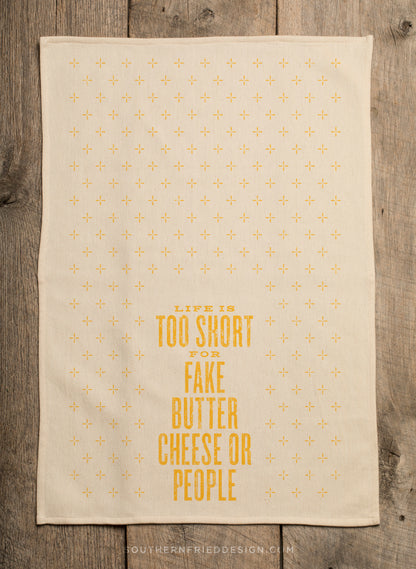 LIFE IS
TOO SHORT
FOR
FAKE
BUTTER
CHEESE OR
PEOPLE
SOUTHERNFRIEDDESIGN.COM